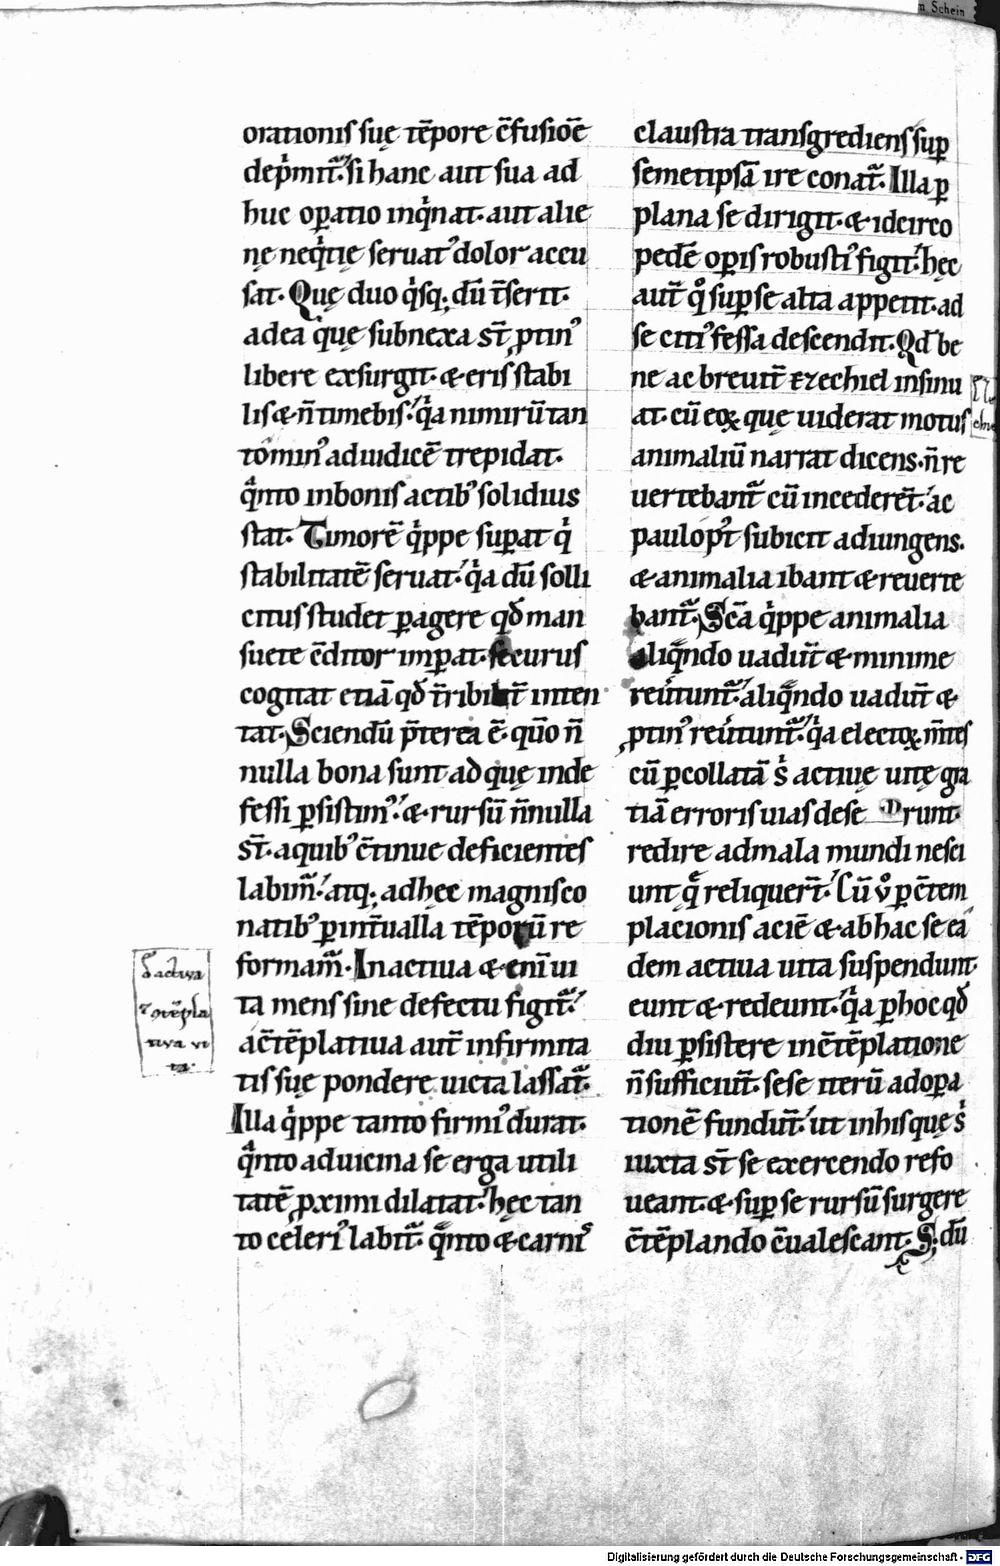 orationiſ ſuę tēpore c̄fuſiōe
dep̍mit᷑. ſi hanc aut ſua ad
huc oꝑatio inq̍nat. aut alie
nę neq̍tię ſeruat᷒ dolor accu
ſat. Quę duo q̍ſq; dū t̄ſerit.
ad ea q̍ quę ſubnexa st̄ ꝓtin᷒
libere exſurgit. & eriſ ſtabi
liſ & ñ timebiſ. q̍a nimirū tan
to min᷒ ad iudicē trepidat.
qͣnto in boniſ actib᷒ ſolidius
ſtat. Timorē q̍ppe ſuꝑat q̍
ſtabilitatē ſeruat. q̍a dū ſolli
citus ſtudet ꝑagere qđ man
ſuete c̄ditor imꝑat. ſecuruſ
cogitat etiā qđ t̄ribilit̄ inten
tat. Sciendū p̄terea ē. quō ñ
nulla bona ſunt ad quę inde
feſſi ꝑſiſtim᷒. & rurſū ñnulla
st̄. a quib᷒ c̄tinue deficienteſ
labim᷑. atq; ad hęc magniſ co
natib᷒ ꝑ int̄ualla tēporū re
formam᷑. In actiua & enī ui
ta menſ ſine defectu figit᷑.
a c̄tēplatiua aut̄ infirmita
tiſ ſuę pondere uicta laſſat᷑.
Illa q̍ppe tanto firmi᷒ durat.
qͣnto ad uicina ſe erga utili
tatē ꝓximi dilatat. hęc tan
to celeri᷒ labit᷑. qͣnto & carni᷒
clauſtra tranſgredienſ ſuꝑ
ſemetipſā ire conat᷑. Illa ꝑ
plana ſe dirigit. & idcirco
pedē oꝑiſ robuſti᷒ figit. hęc
aut̄ qͦ ſuꝑ ſe alta appetit. ad
ſe citi᷒ feſſa deſcendit. Qđ be
ne ac breuit̄ Ezechiel inſinu
at. cū eoꝝ quę uiderat motuſ
animaliū narrat dicens. ñ re
uertebant᷑ cū incederet̄. ac
paulo p᷒t ſubicit adiungens.
& animalia ibant & reuerte
bant᷑. Scā q̍ppe animalia
aliqͣndo uadūt & minime
reūtunt᷑. aliqͣndo uadūt &
ꝓtin᷒ reūtunt᷑. q̍a electoꝝ m̄teſ
cū ꝑ collatā s̍ actiuę uitę gra
tiā erroriſ uiaſ deſe runt.
redire ad mala mundi neſci
unt quę reliquer̄t. Cū v̊ ꝑ c̄tem
placioniſ aciē & ab hac ſe eā
dem actiua uita ſuſpendunt.
eunt & redeunt. q̍a ꝑ hoc qđ
diu ꝑſiſtere in c̄tēplatione
ñ ſufficiūt. ſeſe iterū ad oꝑa
tionē fundūt. ut in hiſ quę s̍
iuxta st̄ ſe exercendo refo
ueant. & ſuꝑ ſe rurſū ſurgere
c̄tēplando c̄ualeſcant. S; dū
đ activa
⁊ ꝯtēpla
tiva vi
ta.